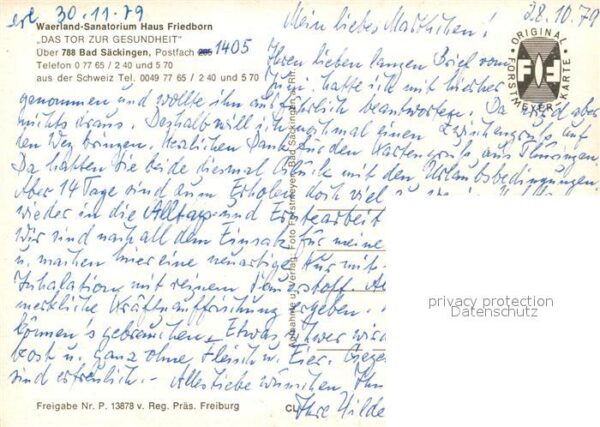 erl. 30.11.79
28.10.79
Waerland-Sanatorium Haus Friedborn
„DAS TOR ZUR GESUNDHEIT"
Über 788 Bad Säckingen, Postfach 1405
Telefon 0 77 65 / 2 40 und 5 70
aus der Schweiz Tel. 0049 77 65 / 2 40 und 5 70
ORIGINAL
FORSTMEYER
KARTE
Mein liebes
Ihren lieben langen Brief vom
Juni hatte ich mit hierher
genommen und wollte ihn ausführlich beantworten. Da wird aber
nichts draus. Deshalb will ich nochmal einen Zwischengruß auf
den Weg bringen. Herzlichen Dank für den Kartengruß aus Thüringen
Da hatten Sie beide diesmal Glück mit den Urlaubsbedingungen
Aber 14 Tage sind zum Erholen doch viel zu
wieder in die Alltags- und Erntearbeit
Wir sind nach all dem Einsatz für meine
u. machen hier eine neuartige Kur mit
Inhalation mit reinem Sauerstoff.
merkliche Kräfteauffrischung ergeben.
können's gebrauchen. Etwas schwer wird
kost u. ganz ohne Fleisch u. Eier.
sind erfreulich. - Alles Liebe wünschen Ihnen
Ihre Hilde
privacy protection
Datenschutz
Freigabe Nr. P. 13878 v. Reg. Präs. Freiburg